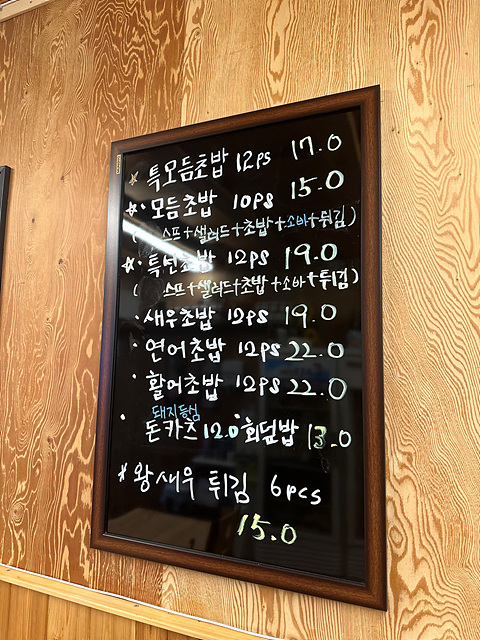 ☆ 특모듬초밥 12ps 17.0
☆· 모듬초밥 10ps 15.0
( 스프+샐러드+초밥+소바+튀김)
☆· 특선초밥 12ps 19.0
( 스프+샐러드+초밥+소바+튀김)
· 새우초밥 12ps 19.0
· 연어초밥 12ps 22.0
· 활어초밥 12ps 22.0
돼지등심
· 돈카츠 12.0 ·회덮밥 13.0
* 왕새우 튀김 6pcs
15.0